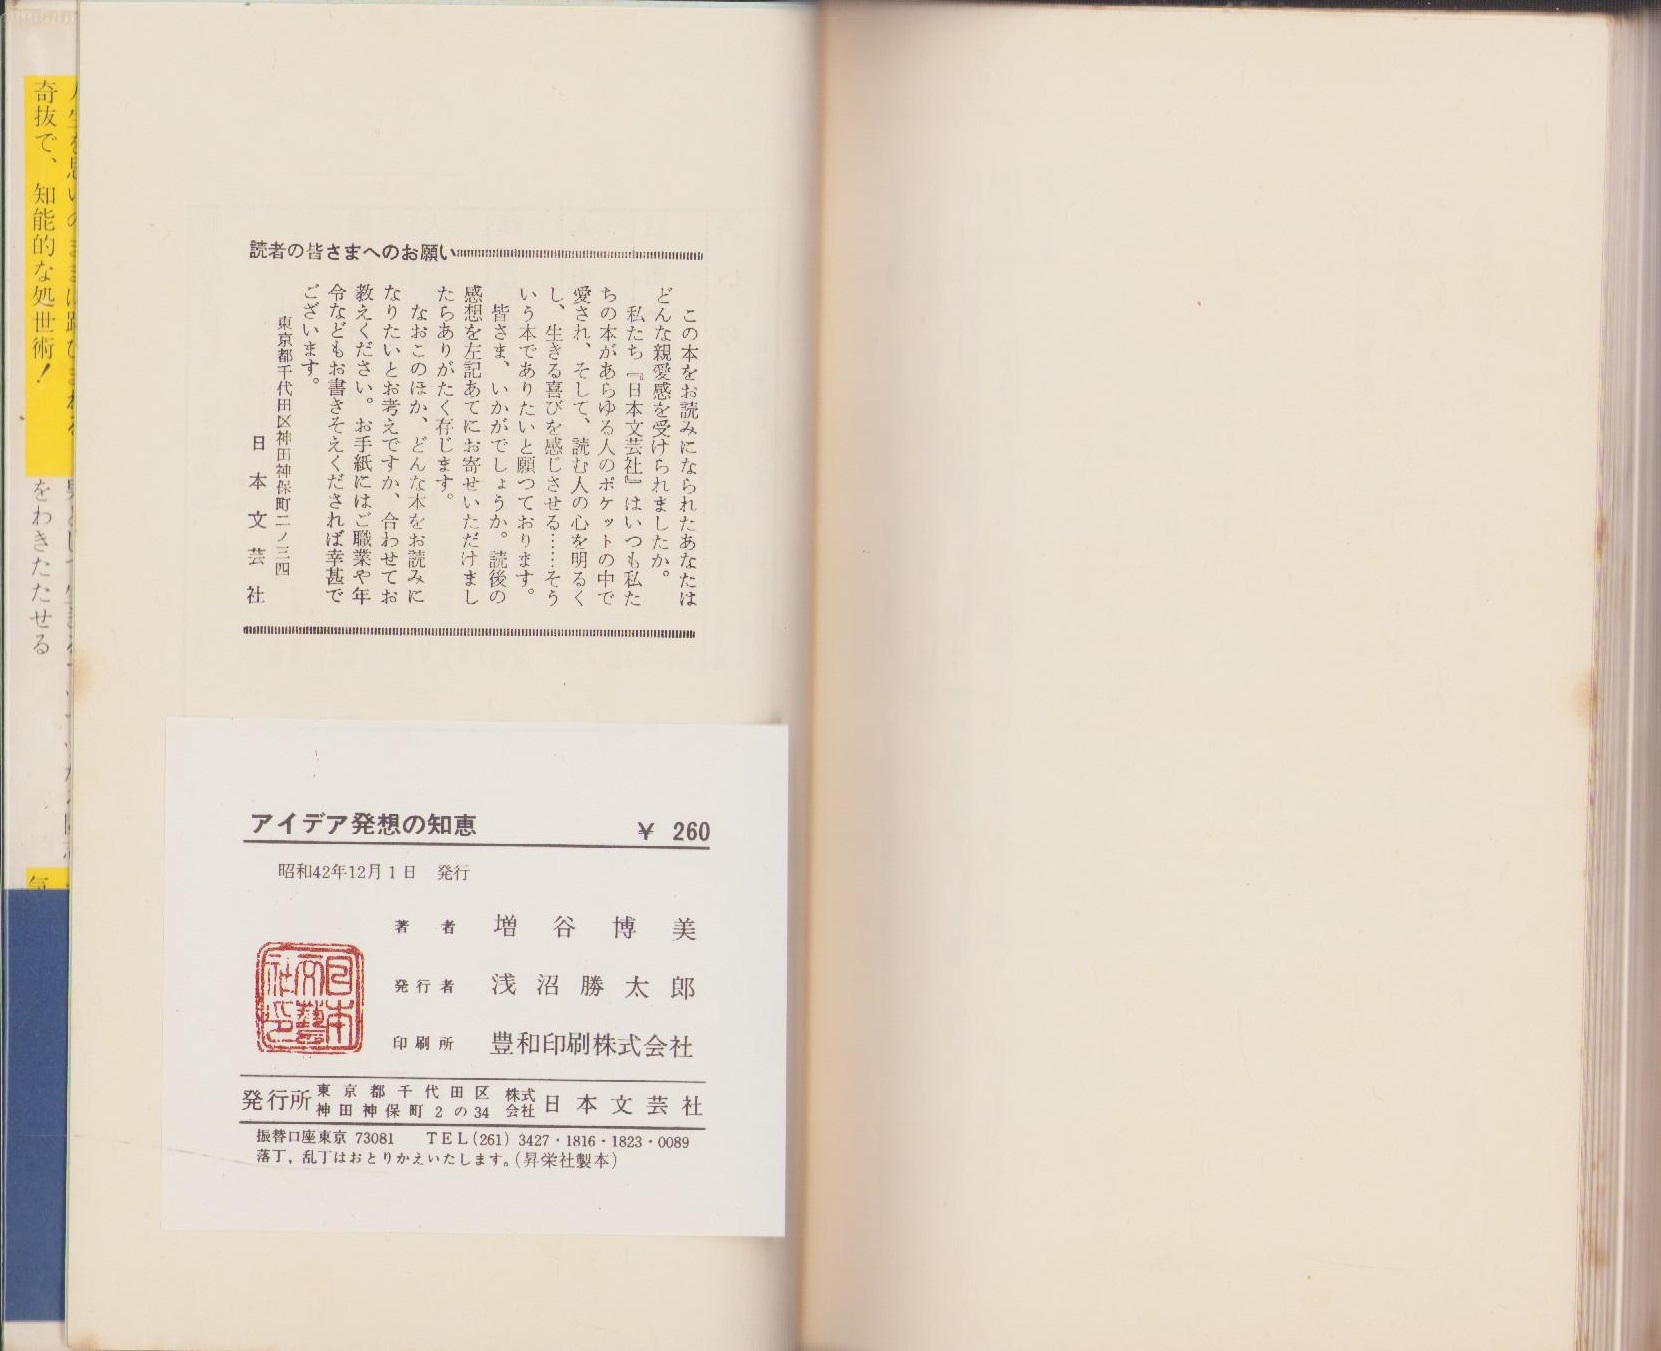 読者の皆さまへのお願い
この本をお読みになられたあなたは
どんな親愛感を受けられましたか。
私たち『日本文芸社』はいつも私た
ちの本があらゆる人のポケットの中で
愛され、そして、読む人の心を明るく
し、生きる喜びを感じさせる……そう
いう本でありたいと願つております。
皆さま、いかがでしょうか。読後の
感想を左記あてにお寄せいただけまし
たらありがたく存じます。
なおこのほか、どんな本をお読みに
なりたいとお考えですか、合わせてお
教えください。お手紙にはご職業や年
令などもお書きそえくだされば幸甚で
ございます。
東京都千代田区神田神保町二ノ三四
日本文芸社
アイデア発想の知恵 ¥ 260
昭和42年12月1日 発行
著者 増谷博美
発行者 浅沼勝太郎
印刷所 豊和印刷株式会社
日本文藝社印
発行所 東京都千代田区 神田神保町2の34 株式会社 日本文芸社
振替口座東京 73081 TEL(261) 3427・1816・1823・0089
落丁,乱丁はおとりかえいたします。(昇栄社製本)
奇抜で、知能的な処世術!
をわきたたせる